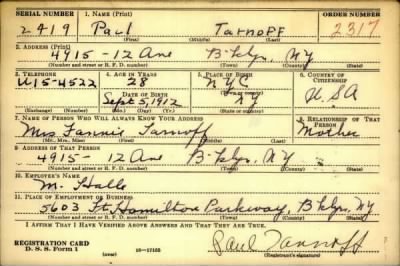 SERIAL NUMBER 1. NAME (Print) ORDER NUMBER
2419 Paul Tarnoff 2317
(First) (Middle) (Last)
2. ADDRESS (Print)
4915-12 Ave B'klyn, NY
(Number and street or R. F. D. number) (Town) (County) (State)
3. TELEPHONE 4. AGE IN YEARS 5. PLACE OF BIRTH 6. COUNTRY OF CITIZENSHIP
28 NYC
DATE OF BIRTH
U15-4522 Sept 5, 1912 NY USA
(Exchange) (Number) (Mo.) (Day) (Yr.) (Town) (County) (State or country)
7. NAME OF PERSON WHO WILL ALWAYS KNOW YOUR ADDRESS 8. RELATIONSHIP OF THAT PERSON
Mrs Fannie Tarnoff Mother
(Mr., Mrs., Miss) (First) (Middle) (Last)
9. ADDRESS OF THAT PERSON
4915-12 Ave B'klyn, NY
(Number and street or R. F. D. number) (Town) (County) (State)
10. EMPLOYER'S NAME
M. Halle
11. PLACE OF EMPLOYMENT OR BUSINESS
5603 Ft. Hamilton Parkway, B'klyn, NY
(Number and street or R. F. D. number) (Town) (County) (State)
I AFFIRM THAT I HAVE VERIFIED ABOVE ANSWERS AND THAT THEY ARE TRUE.
REGISTRATION CARD
D. S. S. Form 1 (over) 16-17105 Paul Tarnoff
(Registrant's signature)